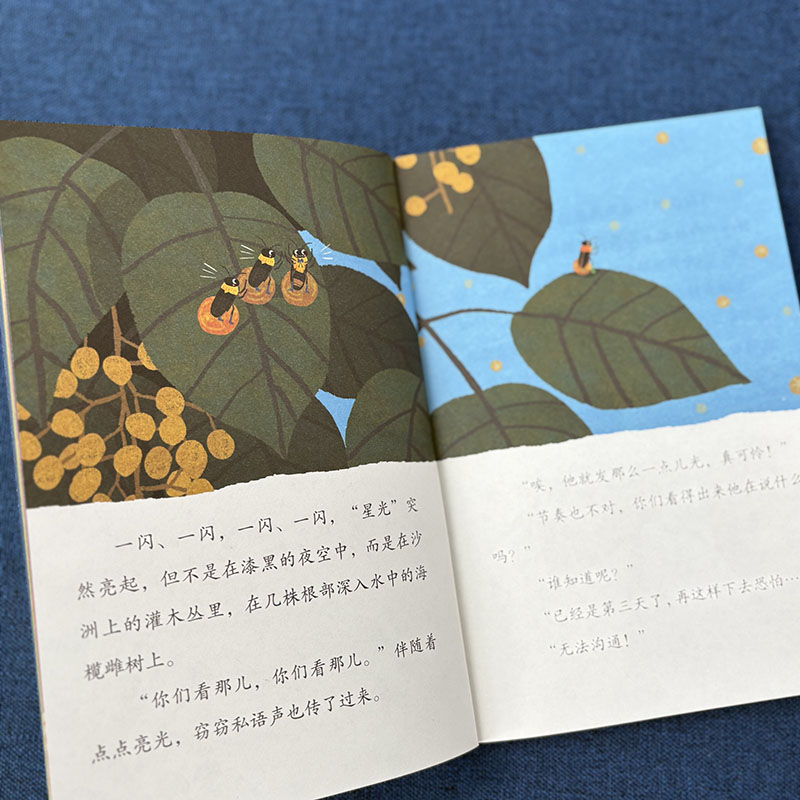 一闪、一闪，一闪、一闪，“星光”突
然亮起，但不是在漆黑的夜空中，而是在沙
洲上的灌木丛里，在几株根部深入水中的海
榄雌树上。
“你们看那儿，你们看那儿。”伴随着
点点亮光，窃窃私语声也传了过来。
“唉，他就发那么一点儿光，真可怜！”
“节奏也不对，你们看得出来他在说什么
吗？”
“谁知道呢？”
“已经是第三天了，再这样下去恐怕…
“无法沟通！”